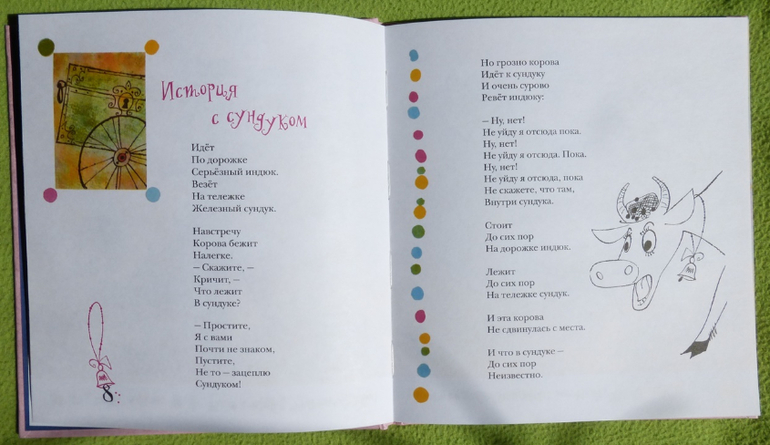 История
с сундуком
Идёт
По дорожке
Серьёзный индюк.
Везёт
На тележке
Железный сундук.
Навстречу
Корова бежит
Налегке.
— Скажите, —
Кричит, —
Что лежит
В сундуке?
— Простите,
Я с вами
Почти не знаком,
Пустите,
Не то — зацеплю
Сундуком!
8
Но грозно корова
Идёт к сундуку
И очень сурово
Ревёт индюку:
— Ну, нет!
Не уйду я отсюда пока.
Ну, нет!
Не уйду я отсюда. Пока.
Ну, нет!
Не уйду я отсюда, пока
Не скажете, что там,
Внутри сундука.
Стоит
До сих пор
На дорожке индюк.
Лежит
До сих пор
На тележке сундук.
И эта корова
Не сдвинулась с места.
И что в сундуке —
До сих пор
Неизвестно.